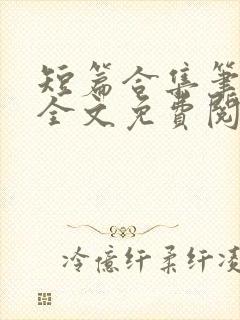 短篇合集筆
全文免費閱
冷億纤柔纤凌